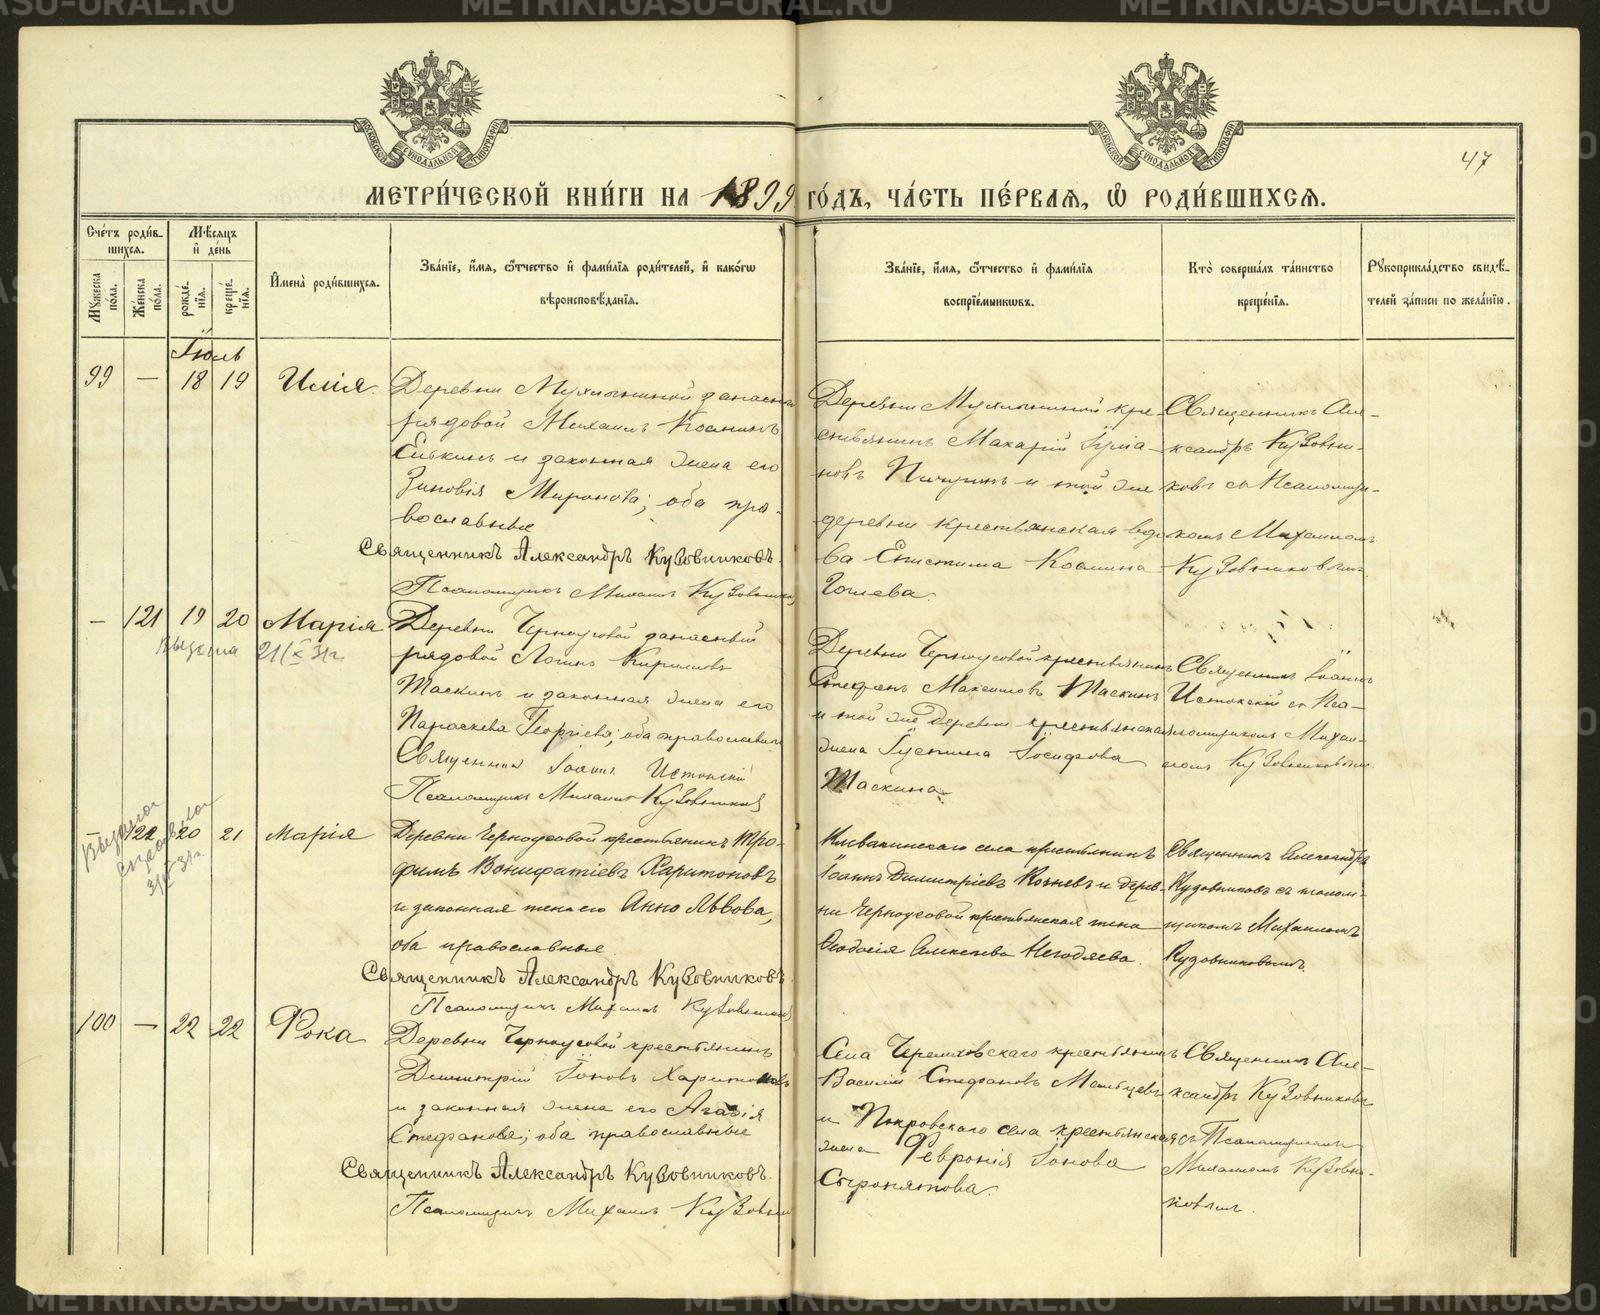 METRIKI.GASU-URAL.RU
47
МЕТРИ́ЧЕСКОЙ КНИ́ГИ НА 1899 ГО́ДЪ, ЧА́СТЬ ПЕ́РВАЯ, Ѡ РОДИ́ВШИХСЯ.
Сче́тъ роди́в-
шихся.
Мꙋжеска по́ла.
Же́нска по́ла.
Мѣ́сяцъ и де́нь
рожде́нїя.
креще́нїя.
Имена̀ роди́вшихся.
Зва́нїе, и́мя, ѻ́тчество и фами́лїя роди́телей, и како́гѡ
вѣроисповѣ́данїя.
Зва́нїе, и́мя, ѻ́тчество и фами́лїя
воспрїе́мникѡвъ.
Кто̀ соверша́лъ та́инство
креще́нїя.
Рꙋкоприкла́дство свидѣ́-
телей за́писи по жела́нїю.
Іюль
99 — 18 19 Илія
Деревни
рядовой Михаилъ Козминъ
и законная жена его
Зиновія Миронова; оба пра-
вославные
Священникъ Александръ Кузовниковъ
Псаломщикъ Михаилъ Кузовников
Деревни кре-
стьянинъ Макарій
новъ Пичугинъ и той же
деревни крестьянская вдо-
ва Епистима Козмина
Священникъ Але-
ксандръ Кузовни-
ковъ съ Псаломщи-
комъ Михаиломъ
Кузовниковымъ
— 121 19 20 Марія
21/X 31 г.
Деревни Черноусовой запасный
рядовой Логинъ Кириловъ
Таскинъ и законная жена его
Параскева Георгіева; оба православные
Священникъ Іоаннъ Истокскій
Псаломщикъ Михаилъ Кузовников
Деревни Черноусовой крестьянинъ
Стефанъ Максимовъ Таскинъ
и той же деревни крестьянская
жена Іустина Іосифова
Таскина
Священникъ Іоаннъ
Истокскій съ Пса-
ломщикомъ Михаи-
ломъ Кузовниковымъ
— 122 20 21 Марія
Деревни Черноусовой крестьянинъ Тро-
фимъ Вонифатіевъ Харитоновъ
и законная жена его Анна Львова,
оба православные
Священникъ Александръ Кузовниковъ
Псаломщикъ Михаилъ Кузовников
Клевакинскаго села крестьянинъ
Іоаннъ Димитріевъ и дерев-
ни Черноусовой крестьянская жена
Ѳеодосія Алексѣева Негодяева.
Священникъ Александръ
Кузовниковъ съ псалом-
щикомъ Михаиломъ
Кузовниковымъ.
100 — 22 22 Фока
Деревни Черноусовой крестьянинъ
Димитрій Іоновъ Харитоновъ
и законная жена его Агафія
Стефанова; оба православные
Священникъ Александръ Кузовниковъ.
Псаломщикъ Михаилъ Кузовник
Села Черемховскаго крестьянинъ
Василій Стефановъ Мальцевъ
и Покровскаго села крестьянская
жена Февронія Іонова
Сыропятова.
Священникъ Але-
ксандръ Кузовниковъ
съ Псаломщикомъ
Михаиломъ Кузовни-
ковымъ.